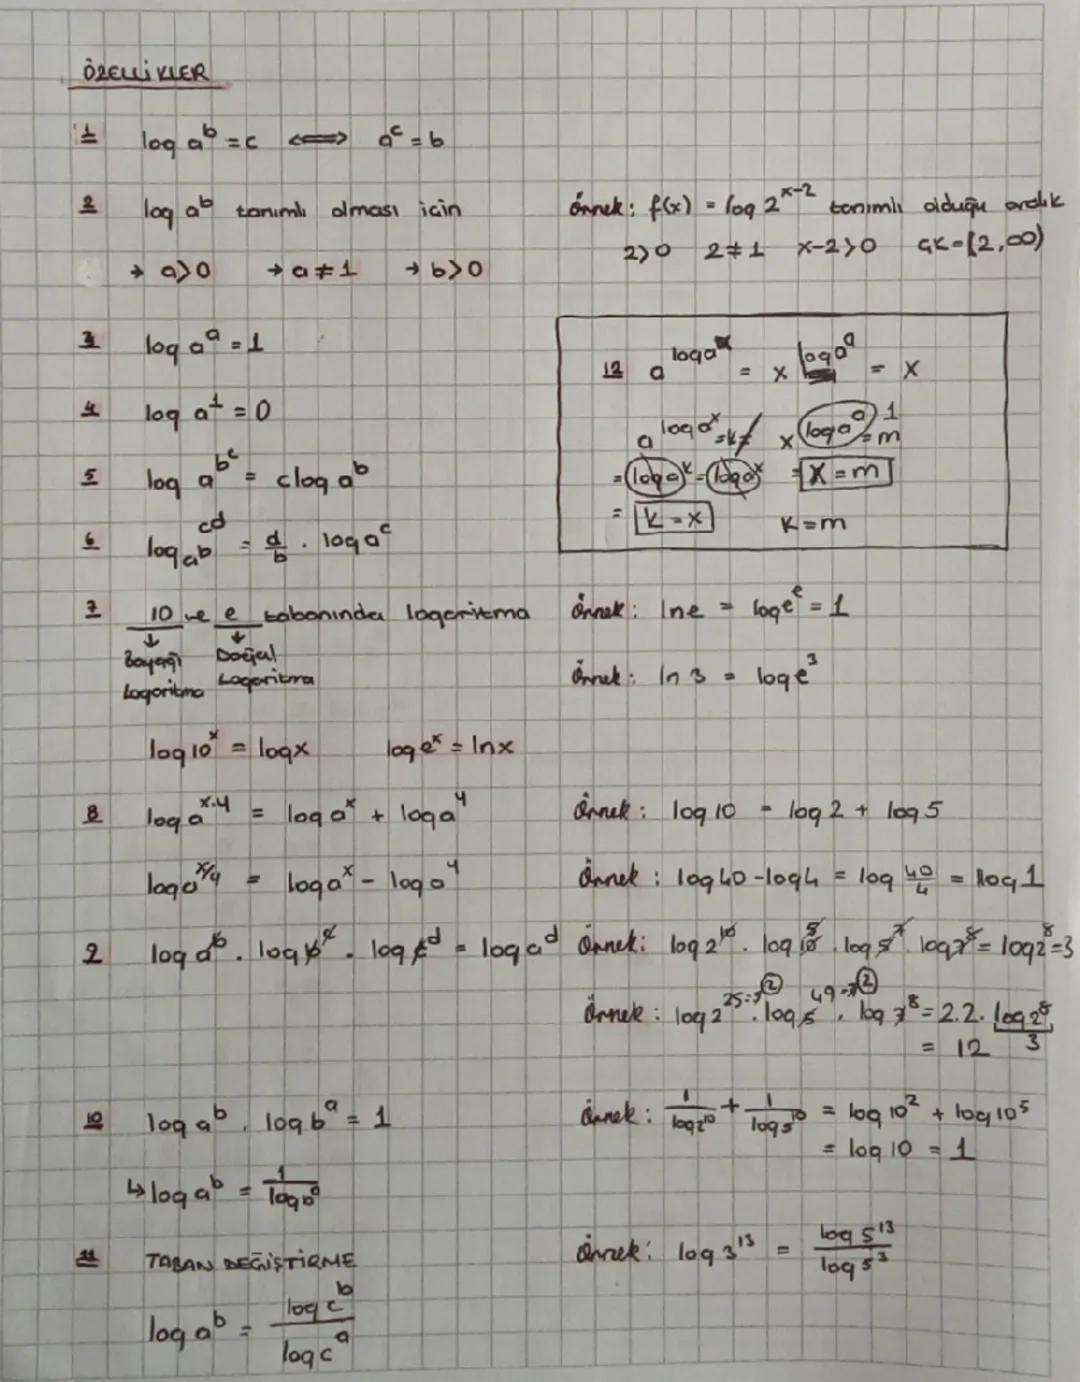 ÖZELLİKLER
1 log a^b = c ⟺ a^c = b
2 log a^b tanımlı olması için
→ a>0 → a≠1 → b>0
Örnek: f(x) = log 2^x-2 tanımlı olduğu aralık
2>0 2≠1 x-2>0 ÇK=(2,∞)
3 log a^a = 1
4 log a^1 = 0
5 log a^b^c = clog a^b
6 log a^b^cd = d/b . log a^c
12 a^log a^x = x^log a^a = x
a^log a^x = k x^log a^a = m 1
= log a^k = log a^x = x = m
= k = x K = m
7 10 ve e tabanında logaritma
↓ ↓
Bayağı Doğal
Logaritma Logaritma
Örnek: ln e = log e^e = 1
Örnek: ln 3 = log e^3
log 10^x = log x log e^x = ln x
8 log a^x.y = log a^x + log a^y
Örnek: log 10 = log 2 + log 5
log a^x/y = log a^x - log a^y
Örnek: log 40 - log 4 = log 40/4 = log 1
9 log a^b . log b^c . log c^d = log a^d
Örnek: log 2^10 . log 10^5 . log 5^7 . log 7^8 = log 2^8 = 3
Örnek: log 2^25=5^2 . log 5^49=7^2 . log 7^8 = 2.2. log 2^8
= 12 3
10 log a^b . log b^a = 1
↳ log a^b = 1/log b^a
Örnek: 1/log 2^10 + 1/log 5^10 = log 10^2 + log 10^5
= log 10 = 1
11 TABAN DEĞİŞTİRME
log a^b = log c^b/log c^a
Örnek: log 3^13 = log 5^13/log 5^3